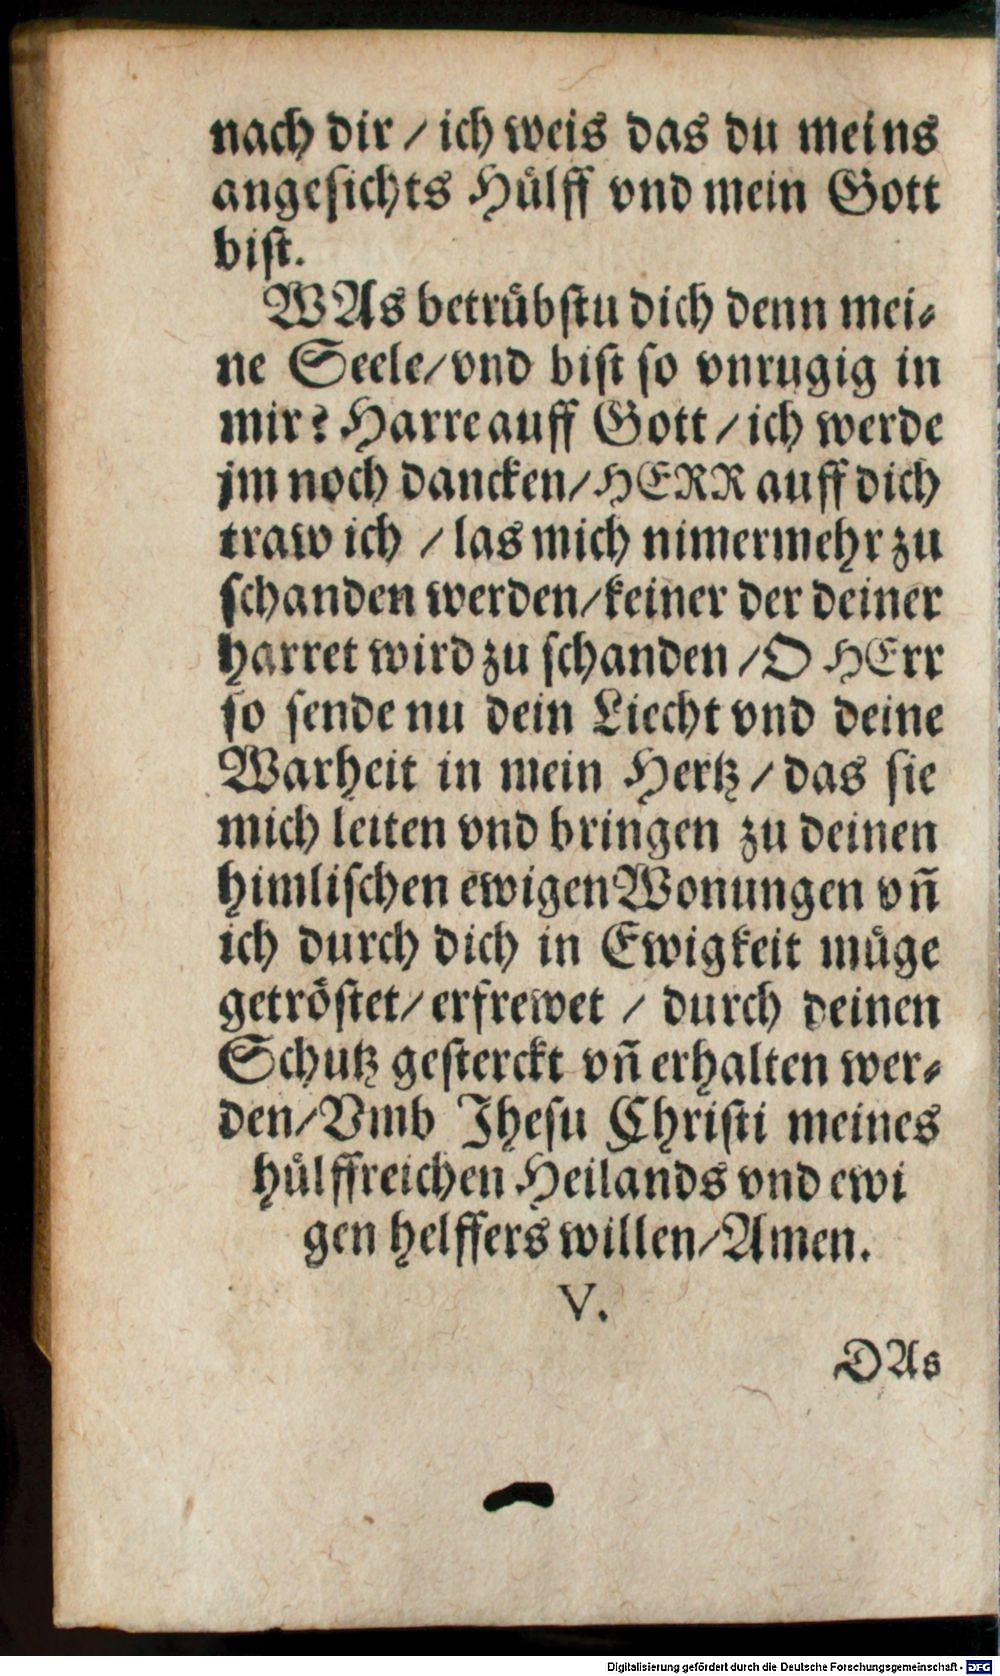 nach dir / ich weis das du meins
angesichts Hülff vnd mein Gott
bist.
WAs betrübstu dich denn mei⸗
ne Seele/vnd bist so vnrugig in
mir? Harre auff Gott / ich werde
jm noch dancken/HERR auff dich
traw ich / las mich nimermehr zu
schanden werden/keiner der deiner
harret wird zu schanden /O HErr
so sende nu dein Liecht vnd deine
Warheit in mein Hertz / das sie
mich leiten vnd bringen zu deinen
himlischen ewigen Wonungen vñ
ich durch dich in Ewigkeit müge
getröstet/ erfrewet / durch deinen
Schutz gesterckt vñ erhalten wer⸗
den/Vmb Jhesu Christi meines
hülffreichen Heilands vnd ewi
gen helffers willen/Amen.
V.
DAs
Digitalisierung gefördert durch die Deutsche Forschungsgemeinschaft - DFG